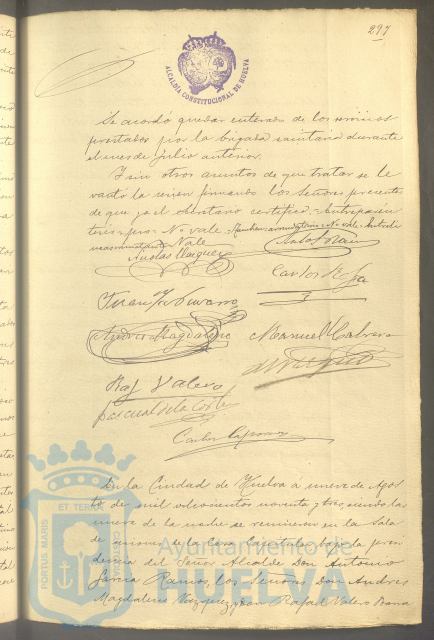 297
ALCALDIA CONSTITUCIONAL DE HUELVA
Se acordó quedar enterado de los servicios
prestados por la brigada sanitaria durante
el mes de Julio anterior.
Y sin otros asuntos de que tratar se le
vantó la sesion firmando los Señores presentes
de que yo el Secretario certifico = Entre
Vale
Nicolas Vazquez
Carlos
Francisco Navarro
Andres Magdaleno
Manuel Cabrera
Raf Valero
Pascual de la Corte
Carlos
En la Ciudad de Huelva a nueve de Agos
to de mil ochocientos noventa y tres, siendo las
nueve de la noche se reunieron en la Sala
de sesiones de la Casa Capitular bajo la presi
dencia del Señor Alcalde Don Antonio
Garcia Ramos, los Señores Don Andres
Magdaleno Vazquez, Don Rafael Valero
PORTUS MARIS
ET TERRAE
CUSTODIA
Ayuntamiento de
HUELVA